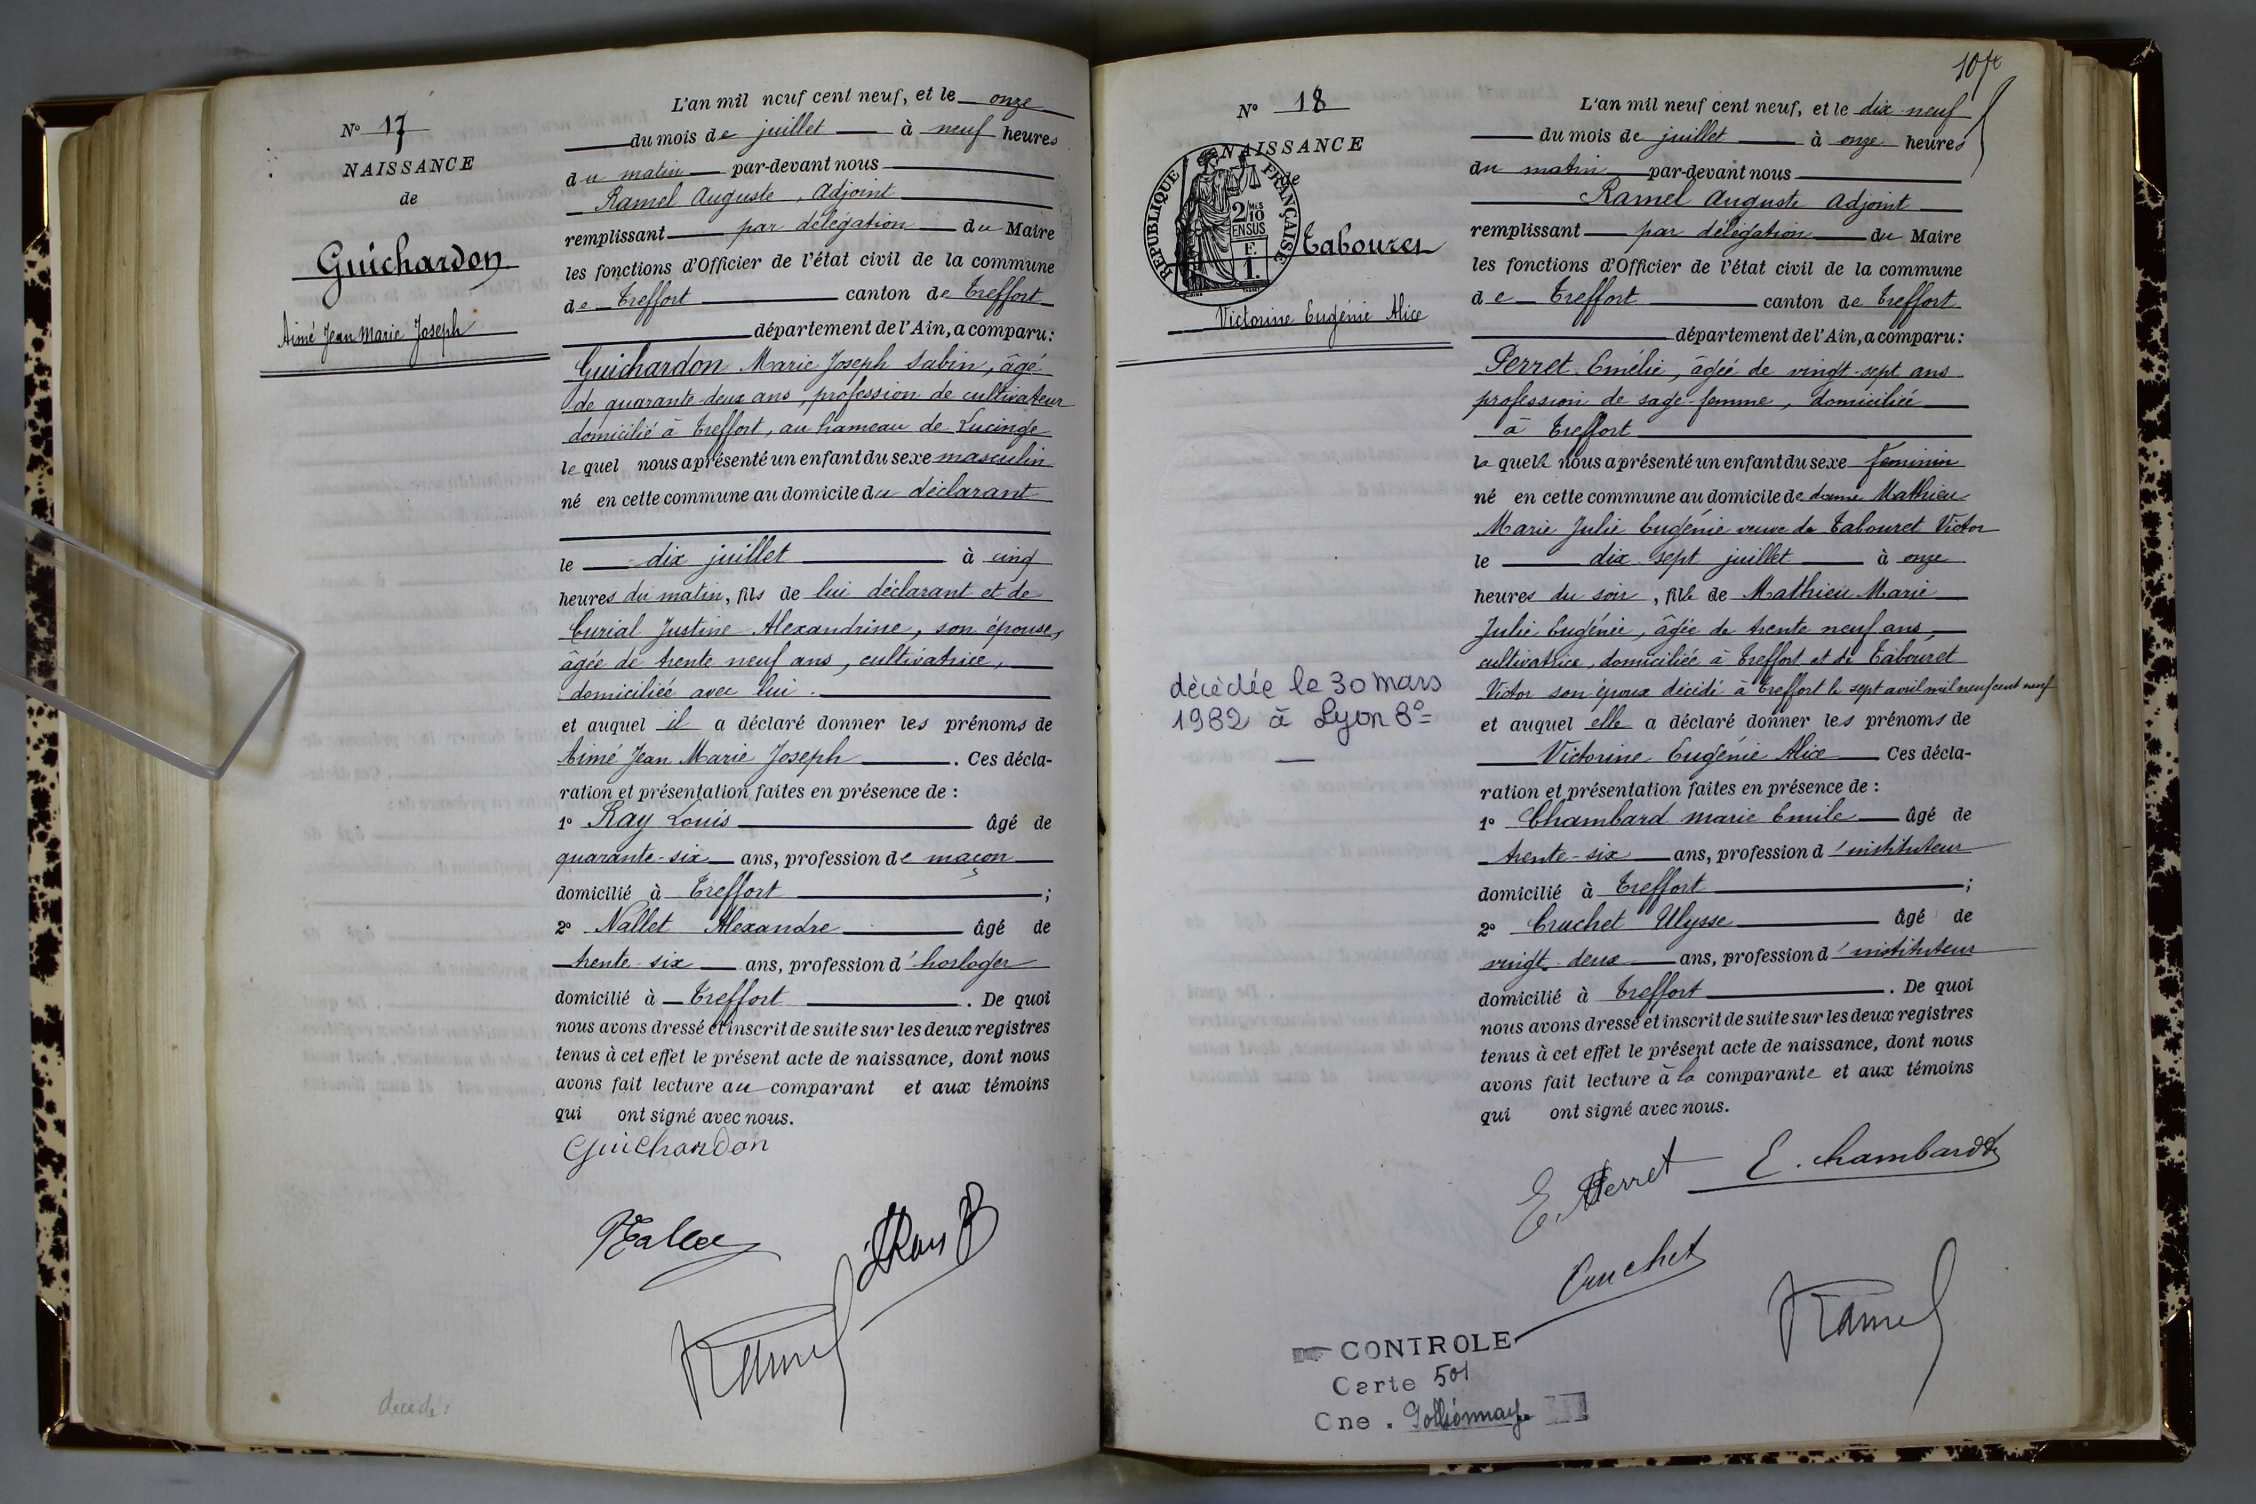 N° 17
NAISSANCE
de
Guichardon
Aimé Jean Marie Joseph
L'an mil neuf cent neuf, et le onze
du mois de juillet à neuf heures
du matin par-devant nous
Ramel Auguste, Adjoint
remplissant par délégation du Maire
les fonctions d'Officier de l'état civil de la commune
de Treffort canton de Treffort
département de l'Ain, a comparu:
Guichardon Marie Joseph Sabin, âgé
de quarante deux ans, profession de cultivateur
domicilié à Treffort, au hameau de Lucinge
lequel nous a présenté un enfant du sexe masculin
né en cette commune au domicile du déclarant
le dix juillet à cinq
heures du matin, fils de lui déclarant et de
Curial Justine Alexandrine, son épouse,
âgée de trente neuf ans, cultivatrice,
domiciliée avec lui.
et auquel il a déclaré donner les prénoms de
Aimé Jean Marie Joseph. Ces décla-
ration et présentation faites en présence de :
1° Ray Louis âgé de
quarante-six ans, profession de maçon
domicilié à Treffort ;
2° Nallet Alexandre âgé de
trente-six ans, profession d'horloger
domicilié à Treffort. De quoi
nous avons dressé et inscrit de suite sur les deux registres
tenus à cet effet le présent acte de naissance, dont nous
avons fait lecture au comparant et aux témoins
qui ont signé avec nous.
Guichardon
Ramel
decedé:
N° 18
NAISSANCE
de
RÉPUBLIQUE FRANÇAISE
2/10 MES
EN SUS
F.
1.
Tabouret
Victorine Eugénie Alice
décédée le 30 mars
1982 à Lyon 8e
L'an mil neuf cent neuf, et le dix-neuf
du mois de juillet à onze heures
du matin par-devant nous
Ramel Auguste Adjoint
remplissant par délégation du Maire
les fonctions d'Officier de l'état civil de la commune
de Treffort canton de Treffort
département de l'Ain, a comparu:
Perret Emélie, âgée de vingt-sept ans
profession de sage-femme, domiciliée
à Treffort
laquelle nous a présenté un enfant du sexe féminin
né en cette commune au domicile de dame Mathieu
Marie Julie Eugénie veuve de Tabouret Victor
le dix sept juillet à onze
heures du soir, fille de Mathieu Marie
Julie Eugénie, âgée de trente neuf ans,
cultivatrice, domiciliée à Treffort et de Tabouret
Victor son époux décédé à Treffort le sept avril mil neuf cent neuf
et auquel elle a déclaré donner les prénoms de
Victorine Eugénie Alice Ces décla-
ration et présentation faites en présence de :
1° Chambard Marie Emile âgé de
trente-six ans, profession d'instituteur
domicilié à Treffort ;
2° Cruchet Ulysse âgé de
vingt-deux ans, profession d'instituteur
domicilié à Treffort. De quoi
nous avons dressé et inscrit de suite sur les deux registres
tenus à cet effet le présent acte de naissance, dont nous
avons fait lecture à la comparante et aux témoins
qui ont signé avec nous.
E. Perret E. Chambard
Cruchet
Ramel
CONTROLE
Carte 501
Cne.